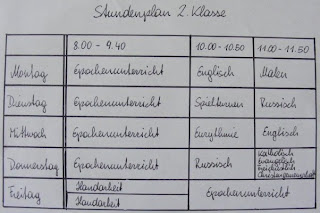 Stundenplan 2. Klasse
8.00 - 9.40 10.00 - 10.50 11.00 - 11.50
Montag Epochenunterricht Englisch Malen
Dienstag Epochenunterricht Spielturnen Russisch
Mittwoch Epochenunterricht Eurythmie Englisch
Donnerstag Epochenunterricht Russisch
Katholisch
Evangelisch
Freichristlich
Christengemeinschaft
Freitag
Handarbeit
Handarbeit
Epochenunterricht